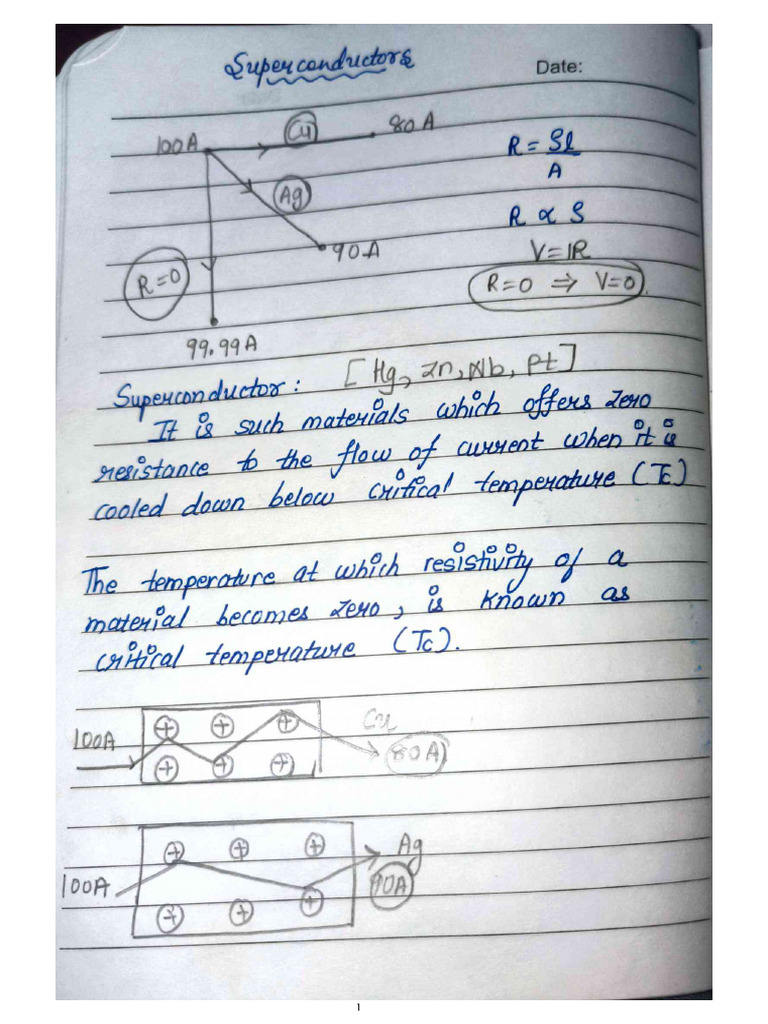 Superconductors
Date:
100A Cu 80A
R = ρl/A
Ag
R ∝ ρ
90A
V=IR
R=0
R=0 ⇒ V=0
99.99A
Superconductor: [Hg, Zn, Nb, Pt]
It is such materials which offers zero
resistance to the flow of current when it is
cooled down below critical temperature (Tc)
The temperature at which resistivity of a
material becomes zero, is known as
critical temperature (Tc).
100A + + + Cu
+ + + 80A
+ + + Ag
100A 90A
+ + +
1